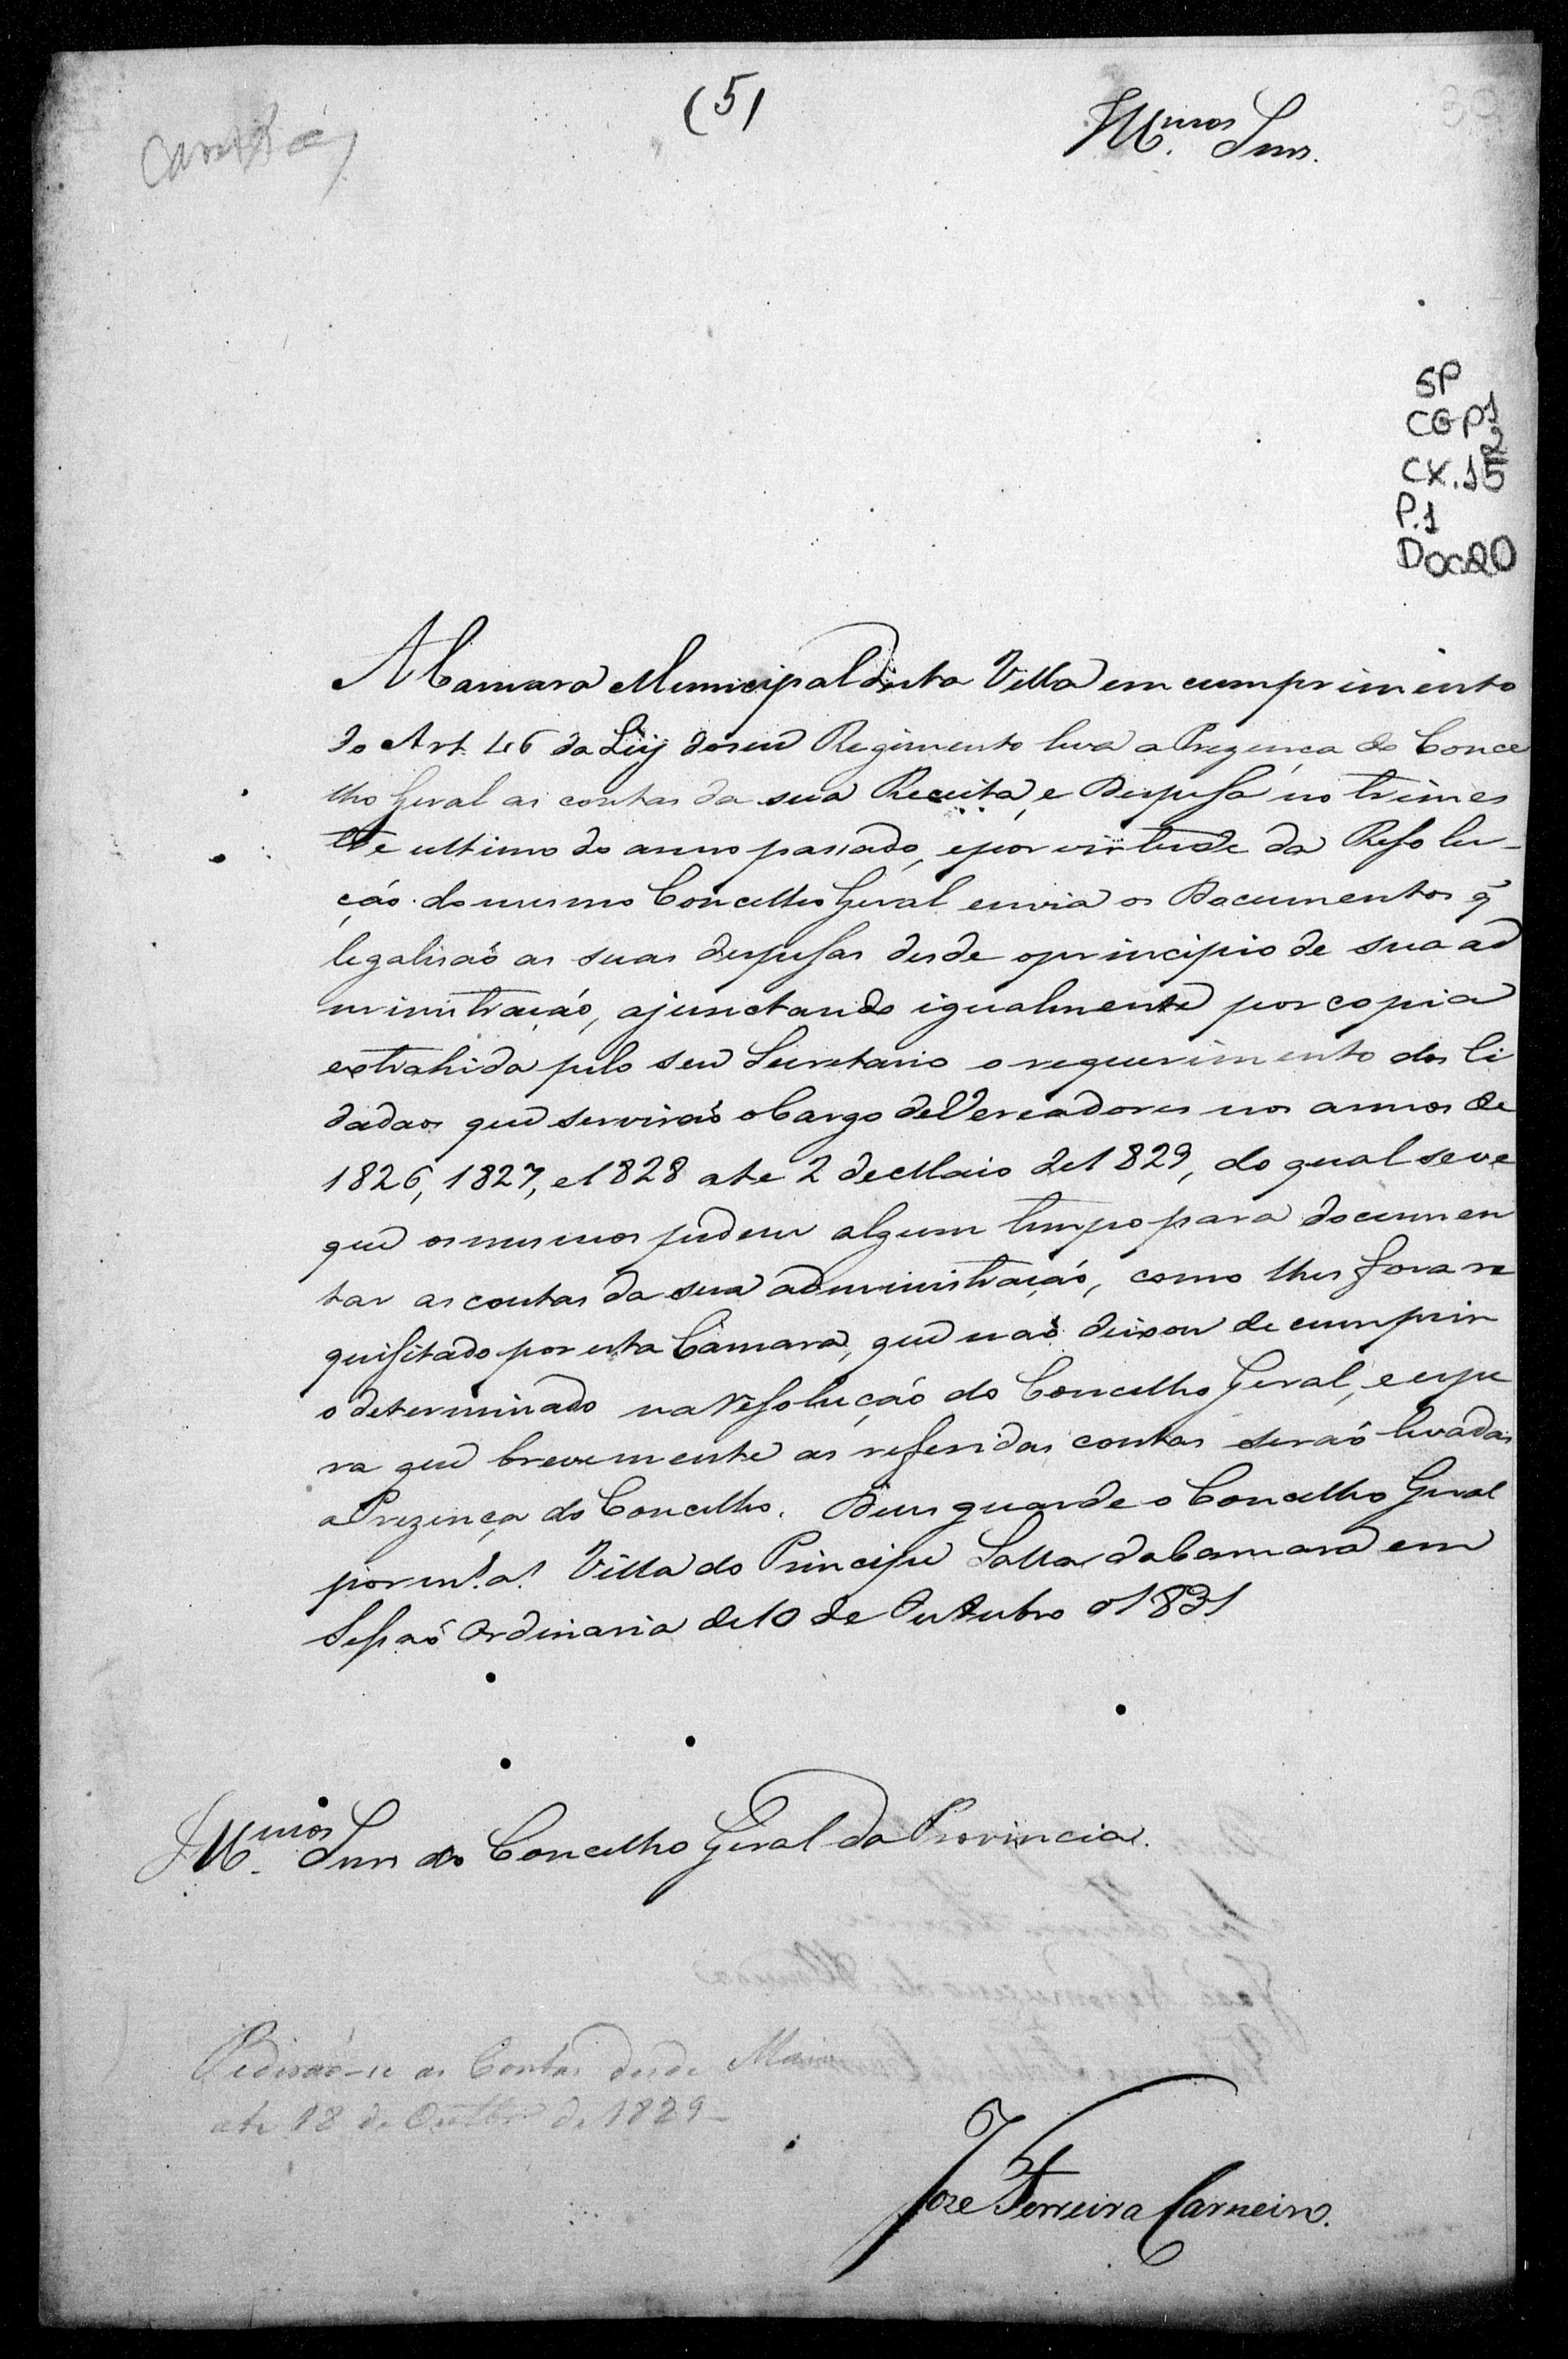 (5)
Ill.mos Snrs.
SP
CGP1
2
CX.15
P.1
DOC20
A Camara Municipal desta Villa em cumprimento
do Art. 46 da Ley do seu Regimento leva a Prezença do Conce
lho Geral as contas da sua Receita, e Despesa no trimes
tre ultimo do anno passado, e por virtude da Resolu-
ção do mesmo Concelho Geral envia os Documentos q̃
legalisaõ as suas despesas desde o principio de sua ad
ministração, ajunctando igualmente por copia
extrahida pelo seu Secretario o requerimento dos Ci
dadaos que serviraõ o Cargo de Vereadores nos annos de
1826, 1827, e 1828 ate 2 de Maio de 1829, do qual se ve
que os mesmos pedem algum tempo para documen
tar as contas da sua administração, como lhes fora re
quisitado por esta Camara, que naõ deixou de cumprir
o determinado na Resolução do Concelho Geral, e espe
ra que brevemente as referidas contas seraõ levadas
a Prezença do Concelho. Deus guarde o Concelho Geral
por m.s a.s Villa do Principe Salla da Camara em
Sessaõ Ordinaria de 10 de Outubro d 1831
Ill.mos Snrs do Concelho Geral da Provincia.
Pediraõ-se as Contas desde Maio
ate 18 de Outbr.o de 1829-
Joze Ferreira Carneiro.